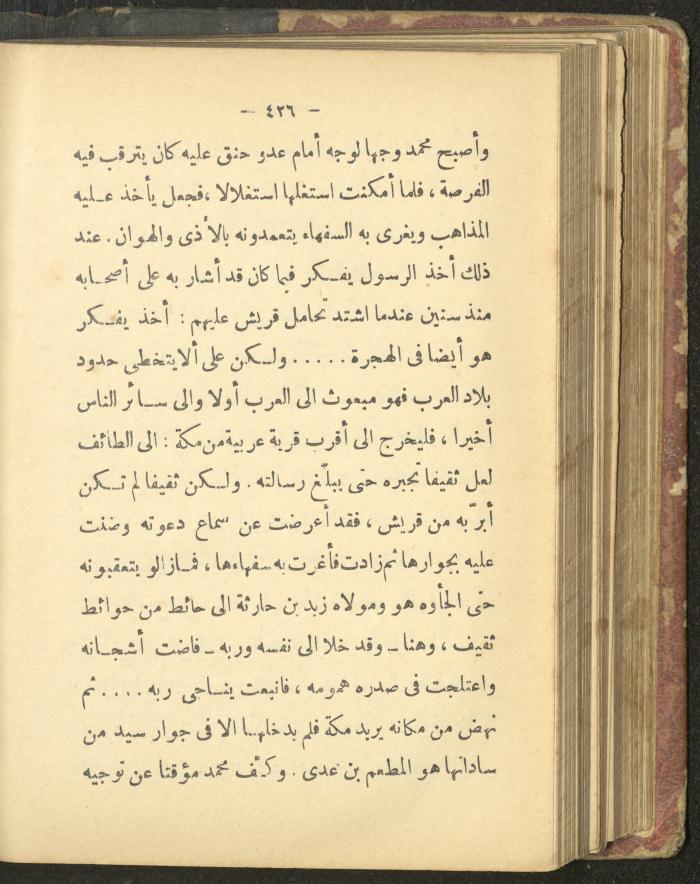 — ٤٢٦ —
وأصبح محمد وجها لوجه أمام عدو حنق عليه كان يترقب فيه
الفرصة ، فلما أمكنت استغلها استغلالا ، فجعل يأخذ عليه
المذاهب ويغرى به السفهاء يتعمدونه بالأذى والهوان . عند
ذلك أخذ الرسول يفكر فيما كان قد أشار به على أصحابه
منذ سنين عندما اشتد تحامل قريش عليهم : أخذ يفكر
هو أيضا فى الهجرة . . . . . ولكن على ألا يتخطى حدود
بلاد العرب فهو مبعوث الى العرب أولا والى سائر الناس
أخيرا ، فليخرج الى أقرب قرية عربية من مكة : الى الطائف
لعل ثقيفا تجيره حتى يبلّغ رسالته . ولكن ثقيفا لم تكن
أبرّ به من قريش ، فقد أعرضت عن سماع دعوته وضنت
عليه بجوارها ثم زادت فأغرت به سفهاءها ، فمازالو يتعقبونه
حتى الجأوه هو ومولاه زيد بن حارثة الى حائط من حوائط
ثقيف ، وهنا ـ وقد خلا الى نفسه وربه ـ فاضت أشجانه
واعتلجت فى صدره همومه ، فانبعت يناجى ربه . . . . ثم
نهض من مكانه يريد مكة فلم يدخلها الا فى جوار سيد من
ساداتها هو المطعم بن عدى . وكفّ محمد مؤقتا عن توجيه